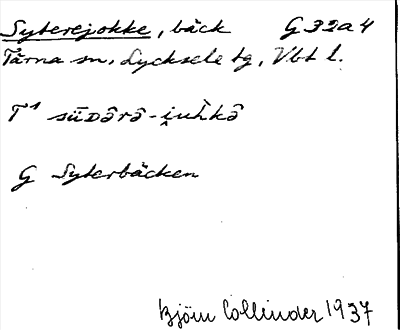 Syterejokke, bäck G 32a4
Tärna sn, Lycksele tg, Vbt l.
T¹ sūᴅârâ-i̯uh̀kâ
G Syterbäcken
Björn Collinder 1937